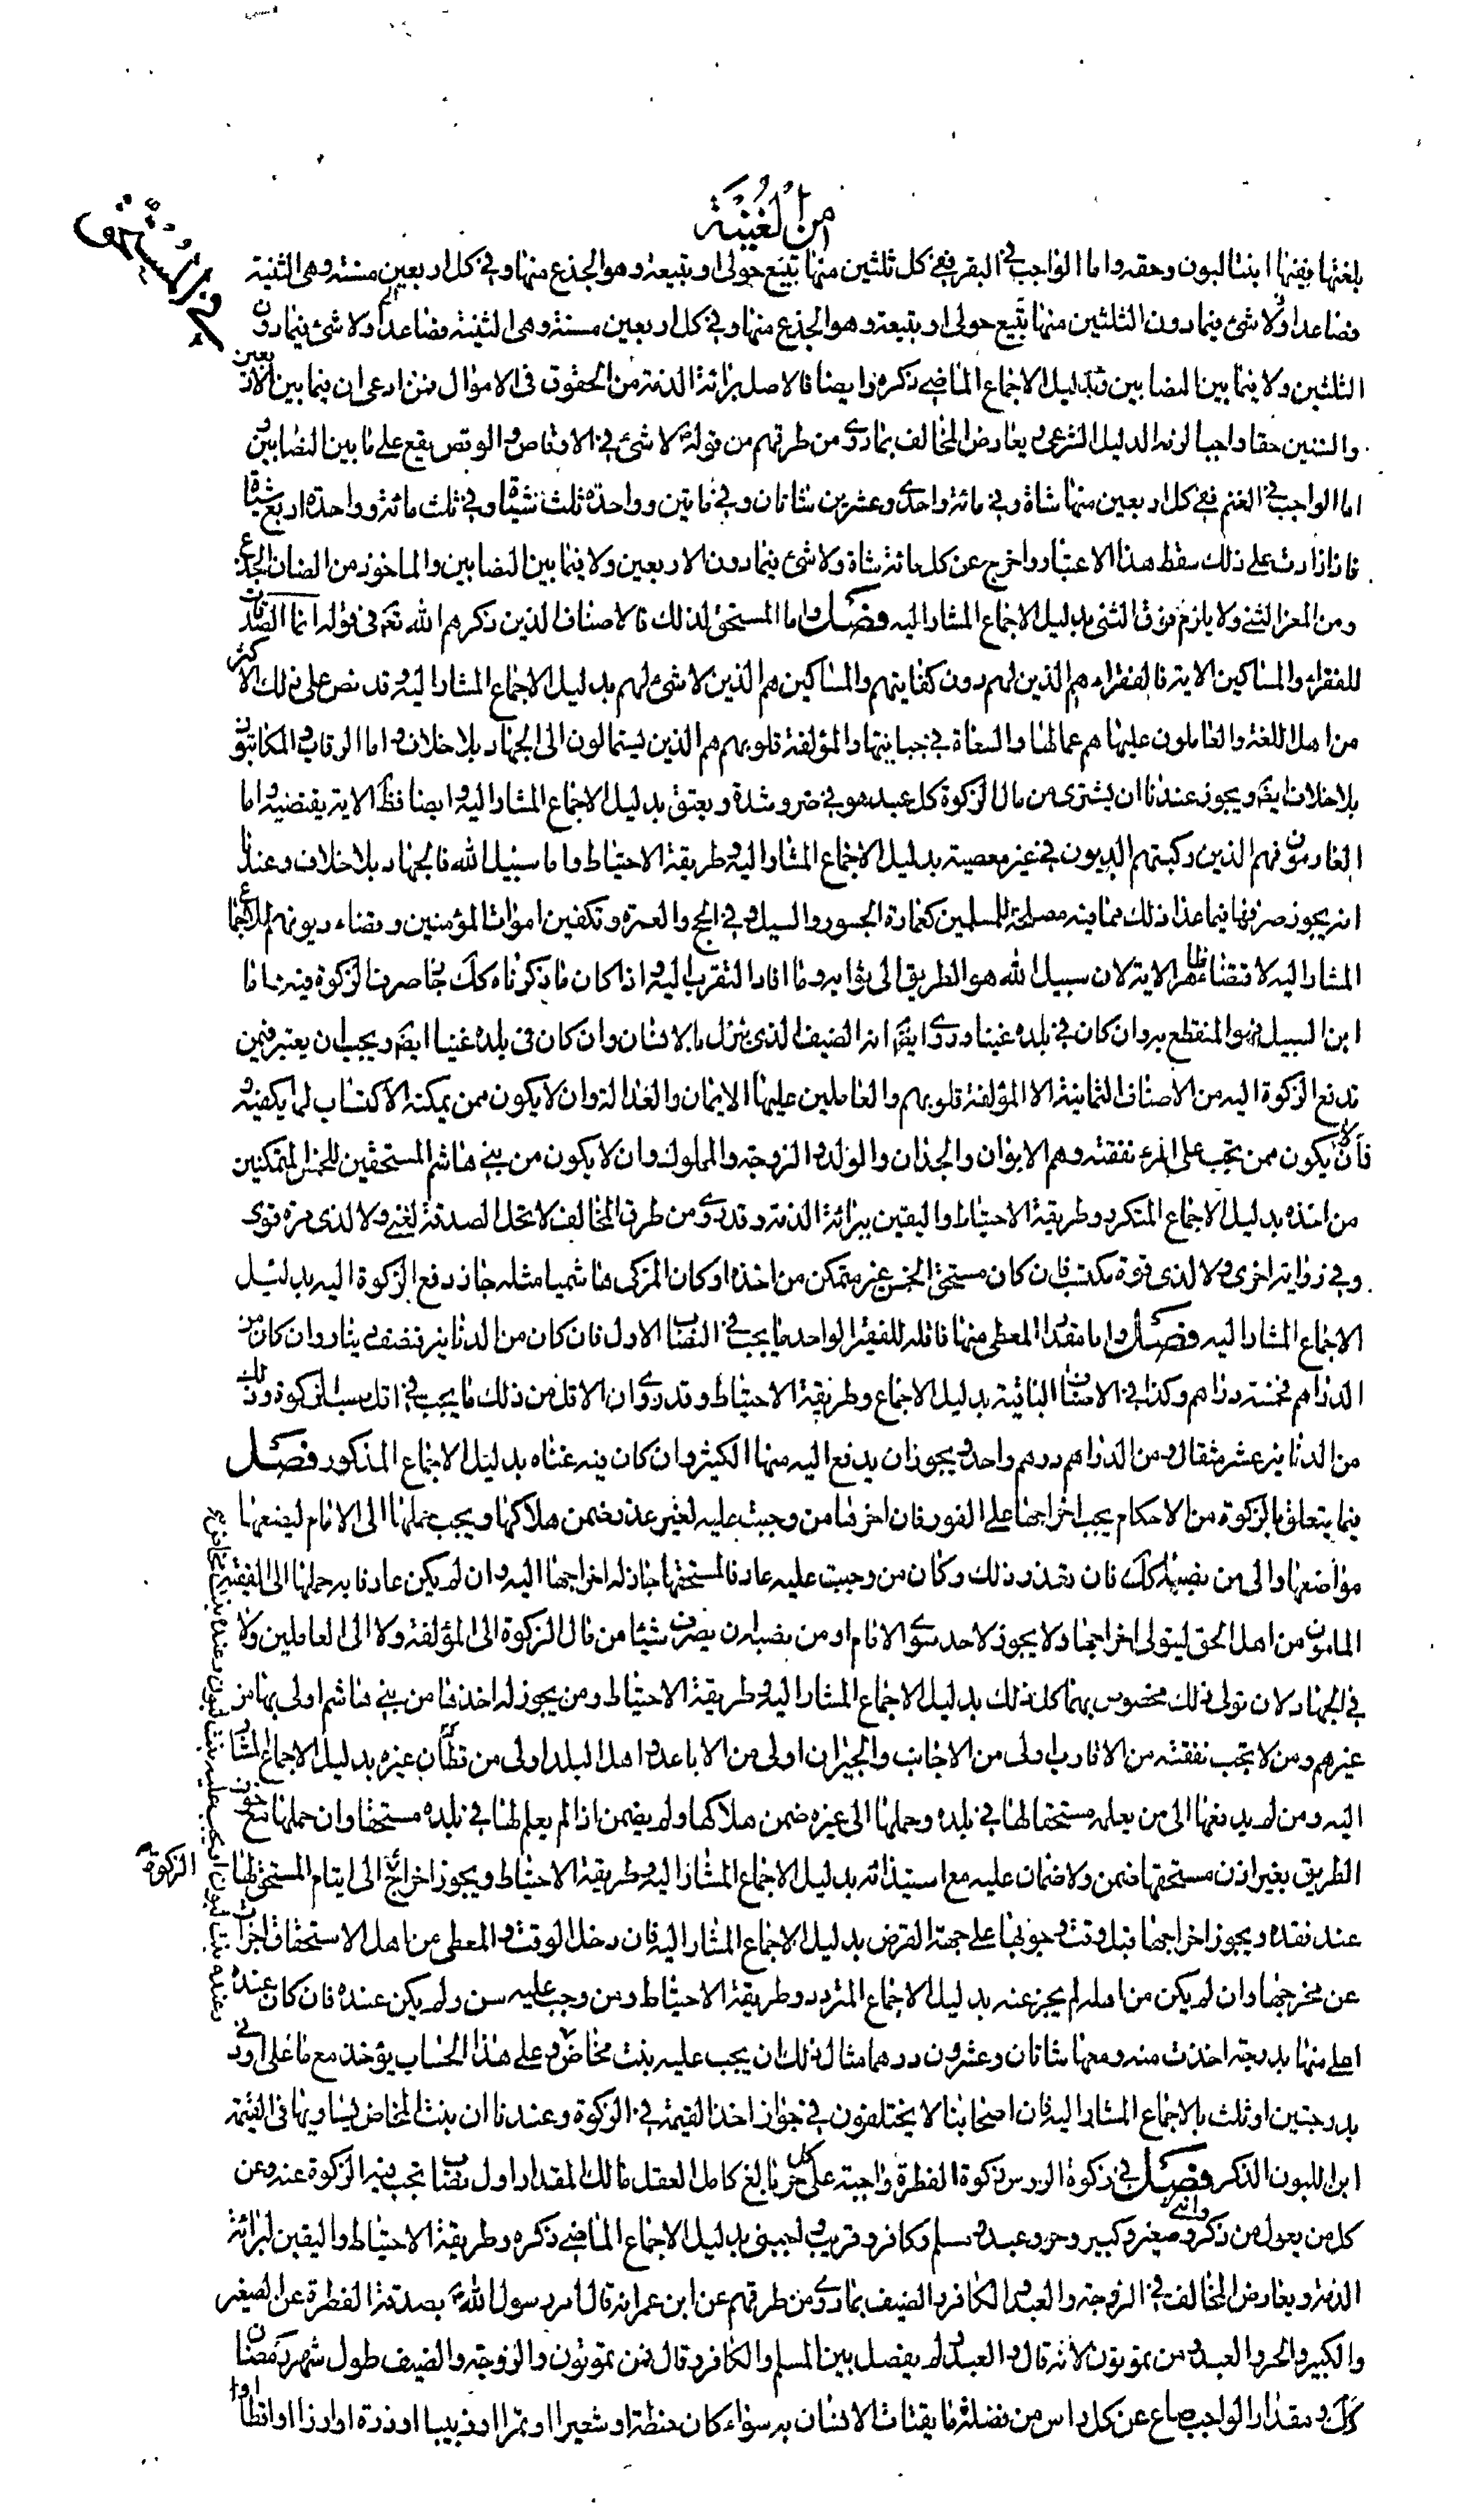 من الغنية
في المستحق
بلغتها ففيها ابنتا لبون وحقه واما الواجب في البقر ففي كل ثلثين منها تبيع حولى او تبيعة وهو الجذع منها وفي كل اربعين مسنة وهى الثنية
فصاعدا ولا شئ فيما دون الثلثين منها تبيع حولى او تبيعة وهو الجذع منها وفي كل اربعين مسنة وهى الثنية فصاعدا ولا شئ فيما دون
الثلثين ولا فيما بين النصابين بدليل الاجماع الماضي ذكره وايضا فالاصل برائة الذمة من الحقوق في الاموال فمن ادعى ان فيما بين الاربعين
والستين حقا واجبا لزمه الدليل الشرعي ويعارض المخالف بما روى من طرقهم من قوله ص لا شئ في الاوقاص والوقص يقع على ما بين النصابين
اما الواجب في الغنم ففي كل اربعين منها شاة وفي مائة واحدى وعشرين شاتان وفي مأتين وواحدة ثلث شياة وفي ثلث مائة وواحدة اربع شياة
فاذا زادت على ذلك سقط هذا الاعتبار واخرج عن كل مائة شاة ولا شئ فيما دون الاربعين ولا فيما بين النصابين والماخوذ من الضان الجذع
ومن المعز الثنى ولا يلزم فوق الثنى بدليل الاجماع المشار اليه فصل واما المستحق لذلك فالاصناف الذين ذكرهم الله تعم في قوله انما الصدقات
للفقراء والمساكين الاية فالفقراء هم الذين لهم دون كفايتهم والمساكين هم الذين لا شئ لهم بدليل الاجماع المشار اليه وقد نص على ذلك الاكثر
من اهل اللغة والعاملون عليها هم عمالها والسعاة في جبايتها والمؤلفة قلوبهم هم الذين يستمالون الى الجهاد بلا خلاف واما الرقاب والمكاتبون
بلا خلاف ايضا ويجوز عندنا ان يشترى من مال الزكوة كل عبد هو في ضر وشدة ويعتق بدليل الاجماع المشار اليه وايضا فظ الاية يقتضيه واما
الغارمون فهم الذين ركبتهم الديون في غير معصية بدليل الاجماع المشار اليه وطريقة الاحتياط واما سبيل الله فالجهاد بلا خلاف وعندنا
انه يجوز صرفها فيما عدا ذلك مما فيه مصلحة للمسلمين كعمارة الجسور والسبيل وفي الحج والعمرة وتكفين اموات المؤمنين وقضاء ديونهم للاجماع
المشار اليه لاقتضاء ظاهر الاية لان سبيل الله هو الطريق الى ثوابه وما افاد التقرب اليه واذا كان ما ذكرناه كك جاز صرف الزكوة فيه فاما
ابن السبيل فهو المنقطع به وان كان في بلده غنيا وروى ايضا انه الضيف الذى ينزل بالانسان وان كان في بلده غنيا ايضا ويجب ان يعتبر فيمن
تدفع الزكوة اليه من الاصناف الثمانية الا المؤلفة قلوبهم والعاملين عليها الايمان والعدالة وان لا يكون ممن يمكنه الاكتساب لما يكفيه
فان لا يكون ممن تجب على المرء نفقته وهم الابوان والجدان والولد والزوجة والمملوك وان لا يكون من بنى هاشم المستحقين للخمس المتمكنين
من اخذه بدليل الاجماع المتكرر وطريقة الاحتياط واليقين ببرائة الذمة وقد روى من طرق المخالف لا تحل الصدقة لغنى ولا لذى مرة قوى
وفي رواية اخرى ولا لذى قوة مكتسب فان كان مستحق الخمس غير متمكن من اخذه او كان المزكى هاشميا مثله جاز دفع الزكوة اليه بدليل
الاجماع المشار اليه فصل واما مقدار المعطى منها فاقله للفقير الواحد ما يجب في النصاب الاول فان كان من الدنانير فنصف دينار وان كان من
الدراهم فخمسة دراهم وكذا في الاصناف الباقية بدليل الاجماع وطريقة الاحتياط وقد روى ان الاقل من ذلك ما يجب في اقل نصب الزكوة وذلك
من الدنانير عشر مثقال ومن الدراهم درهم واحد ويجوز ان يدفع اليه منها الكثير وان كان فيه غناه بدليل الاجماع المذكور فصل
فيما يتعلق بالزكوة من الاحكام يجب اخراجها على الفور فان اخرها من وجبت عليه لغير عذر ضمن هلاكها ويجب حملها الى الامام ليضعها
مواضعها والى من نصبه لذلك فان تعذر ذلك وكان من وجبت عليه عارفا لمستحقها جاز له اخراجها اليه وان لم يكن عارفا به حملها الى الفقيه
المامون من اهل الحق ليتولى اخراجها ولا يجوز لاحد سوى الامام او من نصبه ان يصرف شيئا من مال الزكوة الى المؤلفة ولا الى العاملين ولا
في الجهاد لان تولى ذلك مخصوص بهما كل ذلك بدليل الاجماع المشار اليه وطريقة الاحتياط ومن يجوز له اخذها من بنى هاشم اولى بها من
غيرهم ومن لا تجب نفقته من الاقارب اولى من الاجانب والجيران اولى من الاباعد واهل البلد اولى من قطان غيره بدليل الاجماع المشار
اليه ومن لم يدفعها الى من يعلمه مستحقا لها في بلده وحملها الى غيره ضمن هلاكها ولم يضمن اذا لم يعلم لها في بلده مستحقا وان حملها مع خوف
الطريق بغير اذن مستحقها ضمن ولا ضمان عليه مع استيذانه بدليل الاجماع المشار اليه وطريقة الاحتياط ويجوز اخراج الى ايتام المستحق لها
الزكوة
عند فقده ويجوز اخراجها قبل وقت وجوبها على جهة القرض بدليل الاجماع المشار اليه فان دخل الوقت والمعطى من اهل الاستحقاق اجزات
عن مخرجها وان لم يكن من اهله لم يجز عنه بدليل الاجماع المتردد وطريقة الاحتياط ومن وجب عليه سن ولم يكن عنده فان كان عنده
اعلى منها بدرجة اخذت منه ومعها شاتان وعشرون درهما مثال ذلك ان يجب عليه بنت مخاض وعلى هذا الحساب يؤخذ مع ما على او دنى
بدرجتين او ثلث بالاجماع المشار اليه فان اصحابنا لا يختلفون في جواز اخذ القيمة في الزكوة وعندنا ان بنت المخاض يساويها في القيمة
ابن اللبون الذكر فصل في زكوة الروس زكوة الفطرة واجبة على كل حر بالغ كامل العقل مالك المقدار اول نصاب تجب فيه الزكوة عنه وعن
كل من يعول من ذكر وانثى وصغير وكبير وحر وعبد ومسلم وكافر وقريب واجنبي بدليل الاجماع الماضي ذكره وطريقة الاحتياط واليقين لبرائة
الذمة ويعارض المخالف في الزوجة والعبد الكافر والضيف بما روى من طرقهم عن ابن عمر انه قال امر رسول الله ص بصدقة الفطرة عن الصغير
والكبير والحر والعبد ومن تمونون لانه قال والعبد ولم يفصل بين المسلم والكافر وقال ممن تمونون والزوجة والضيف طول شهر رمضان
كك ومقدار الواجب صاع عن كل راس من فضلة ما يقتات الانسان به سواء كان حنطة او شعيرا او تمرا او زبيبا او ذرة او ارزا او اقطا او